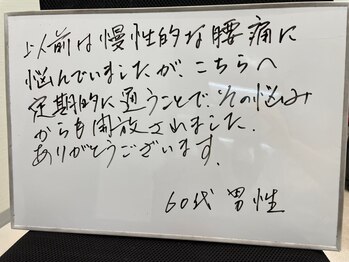 以前は慢性的な腰痛に
悩んでいましたが、こちらへ
定期的に通うことで、その悩み
からも開放されました。
ありがとうございます。
60代 男性